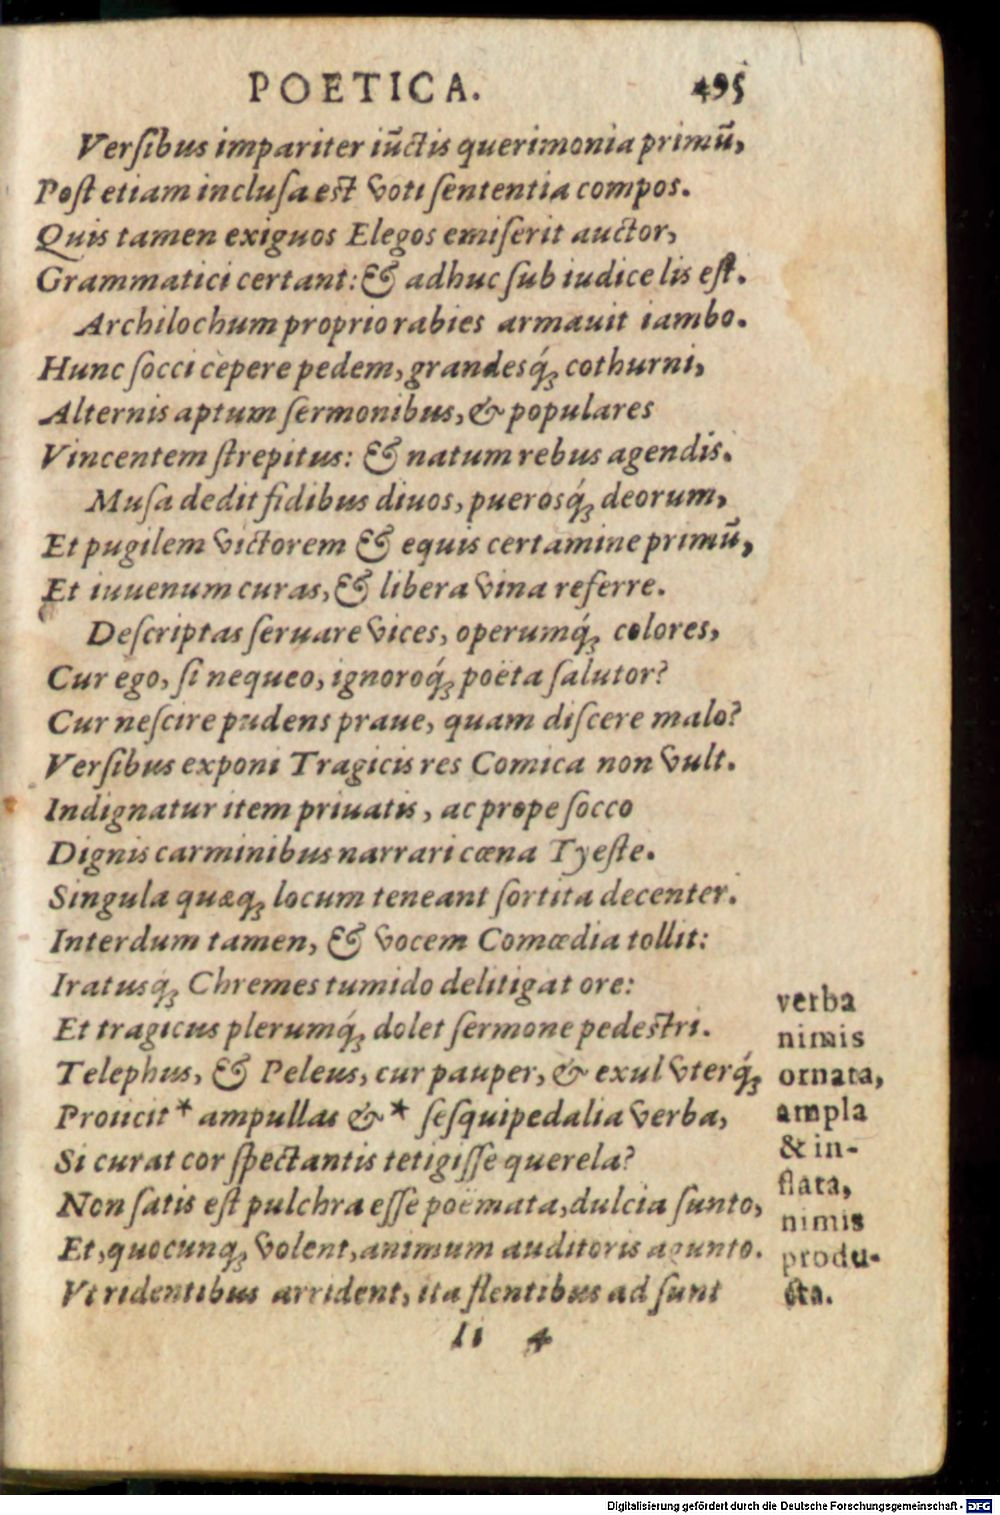 POETICA. 495
Verſibus impariter iũctis querimonia primũ,
Poſt etiam incluſa est voti ſententia compos.
Quis tamen exiguos Elegos emiſerit auctor,
Grammatici certant: & adhuc ſub iudice lis eſt.
Archilochum proprio rabies armauit iambo.
Hunc ſocci cèpere pedem, grandesq́; cothurni,
Alternis aptum ſermonibus, & populares
Vincentem ſtrepitus: & natum rebus agendis.
Muſa dedit fidibus diuos, puerosq́; deorum,
Et pugilem victorem & equis certamine primũ,
Et iuuenum curas, & libera vina referre.
Deſcriptas ſeruare vices, operumq́; colores,
Cur ego, ſi nequeo, ignoroq́; poëta ſalutor?
Cur neſcire pudens praue, quam diſcere malo?
Verſibus exponi Tragicis res Comica non vult.
Indignatur item priuatis, ac prope ſocco
Dignis carminibus narrari cœna Tyeſte.
Singula quæq; locum teneant ſortita decenter.
Interdum tamen, & vocem Comœdia tollit:
Iratusq́; Chremes tumido delitigat ore:
Et tragicus plerumq́; dolet ſermone pedeſtri.
Telephus, & Peleus, cur pauper, & exul vterq́;
Proiicit * ampullas & * ſeſquipedalia verba,
Si curat cor ſpectantis tetigiſſe querela?
Non ſatis eſt pulchra eſſe poëmata, dulcia ſunto,
Et, quocunq; volent, animum auditoris agunto.
Vt ridentibus arrident, ita flentibus ad ſunt
verba
nimis
ornata,
ampla
& in-
flata,
nimis
produ-
cta.
Ii 4
Digitalisierung gefördert durch die Deutsche Forschungsgemeinschaft - DFG